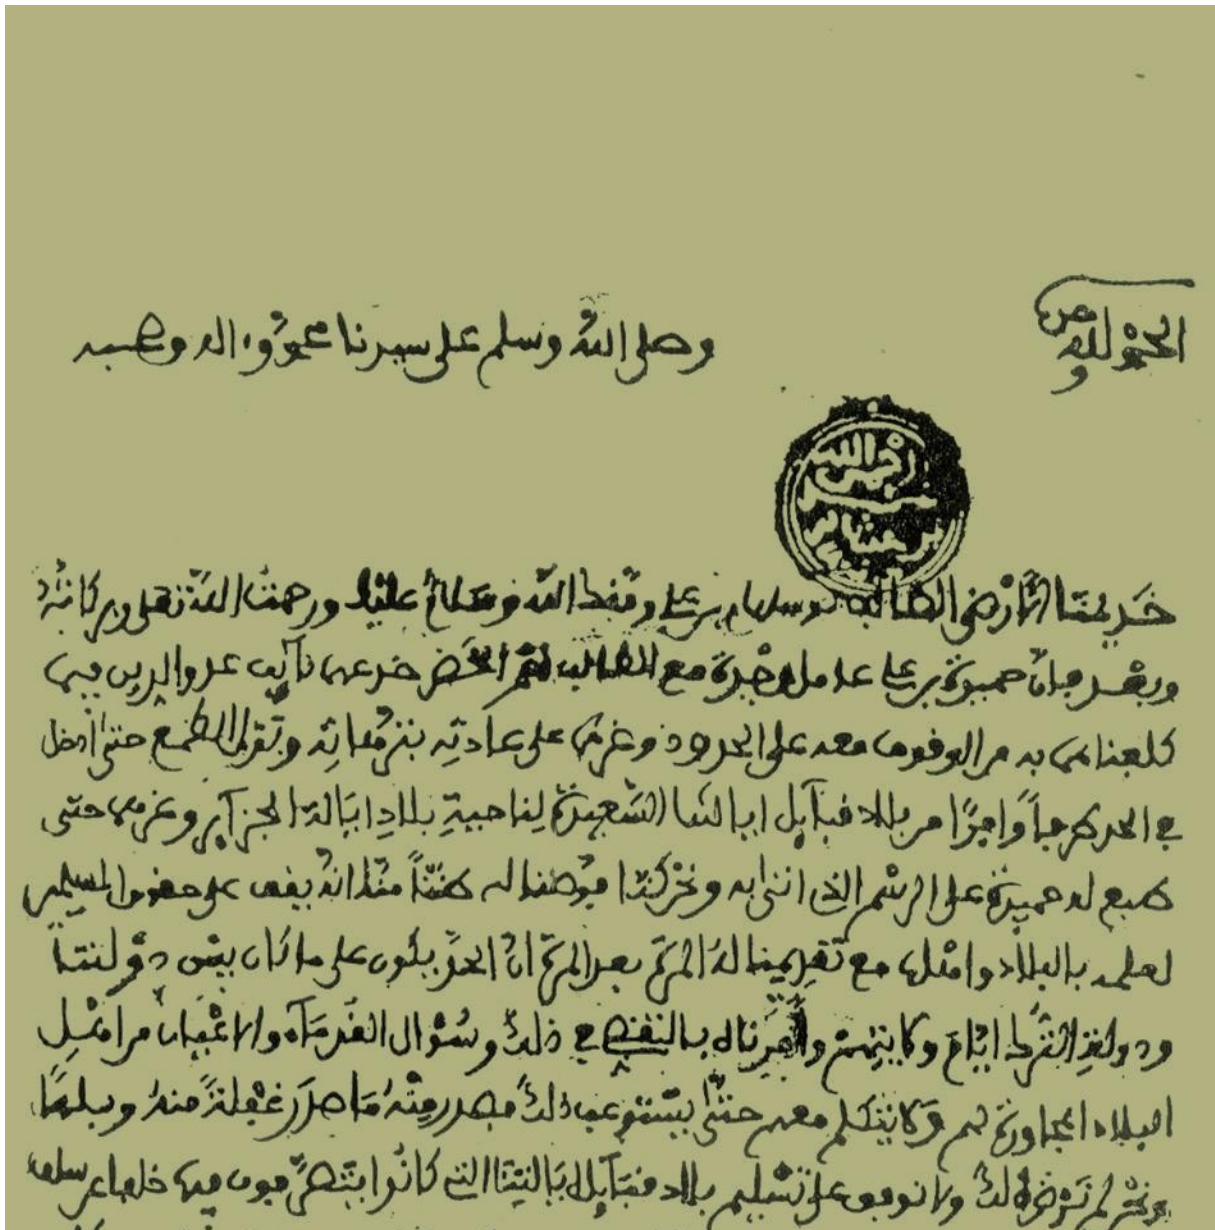 الحمد لله وحده
وصلى الله وسلم على سيدنا محمد واله وصحبه
عبد الرحمن بن هشام
خديمنا الأرضى الطالب بوسلهام بن علي وفقك الله وسلام عليك ورحمت الله تعلى وبركاته
وبعد فإن حميدة بن علي عامل وجدة مع الطالب الخضر خدعهما نايب عدو الدين فيما
كلفناهما به من الوقوف معه على الحدود وغرهما على عادته بنزغاته حتى ادخل
في الحد طرفا وافرا من بلاد قبايل ايالتنا السعيدة لناحية بلاد ايالة الجزاير وغرهما حتى
طبع له حميدة على الرسم الذي اتى به ونحن كنا فوضنا له ظنا منا انه يقف على حقوق المسلمين
لعلمه بالبلاد واهلها مع تقديمنا له المرة بعد المرة ان الحد يكون على ما كان بين دولتنا
ودولة الترك ايام وكايتهم وامرناه بالتفحص في ذلك وسؤال القدماء والاعيان من اهل
البلاد المجاورة لهم ولا يتكلم معهم حتى يستوعب ذلك فصدر منه ما صدر غفلة منه وبلها
ونحن لم نرض ذلك ولا نوافق على تسليم بلاد قبايل ايالتنا التي كانوا يتصرفون فيها خلفا عن سلف